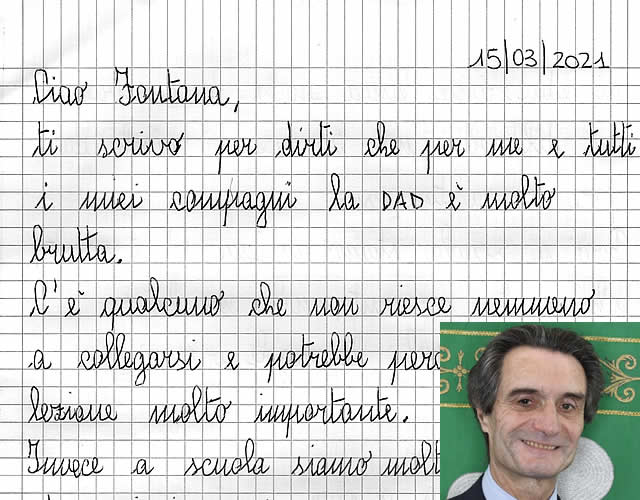 15/03/2021
Ciao Fontana,
ti scrivo per dirti che per me e tutti
i miei compagni la DAD è molto
brutta.
C'è qualcuno che non riesce nemmeno
a collegarsi e potrebbe
lezione molto importante.
Invece a scuola siamo